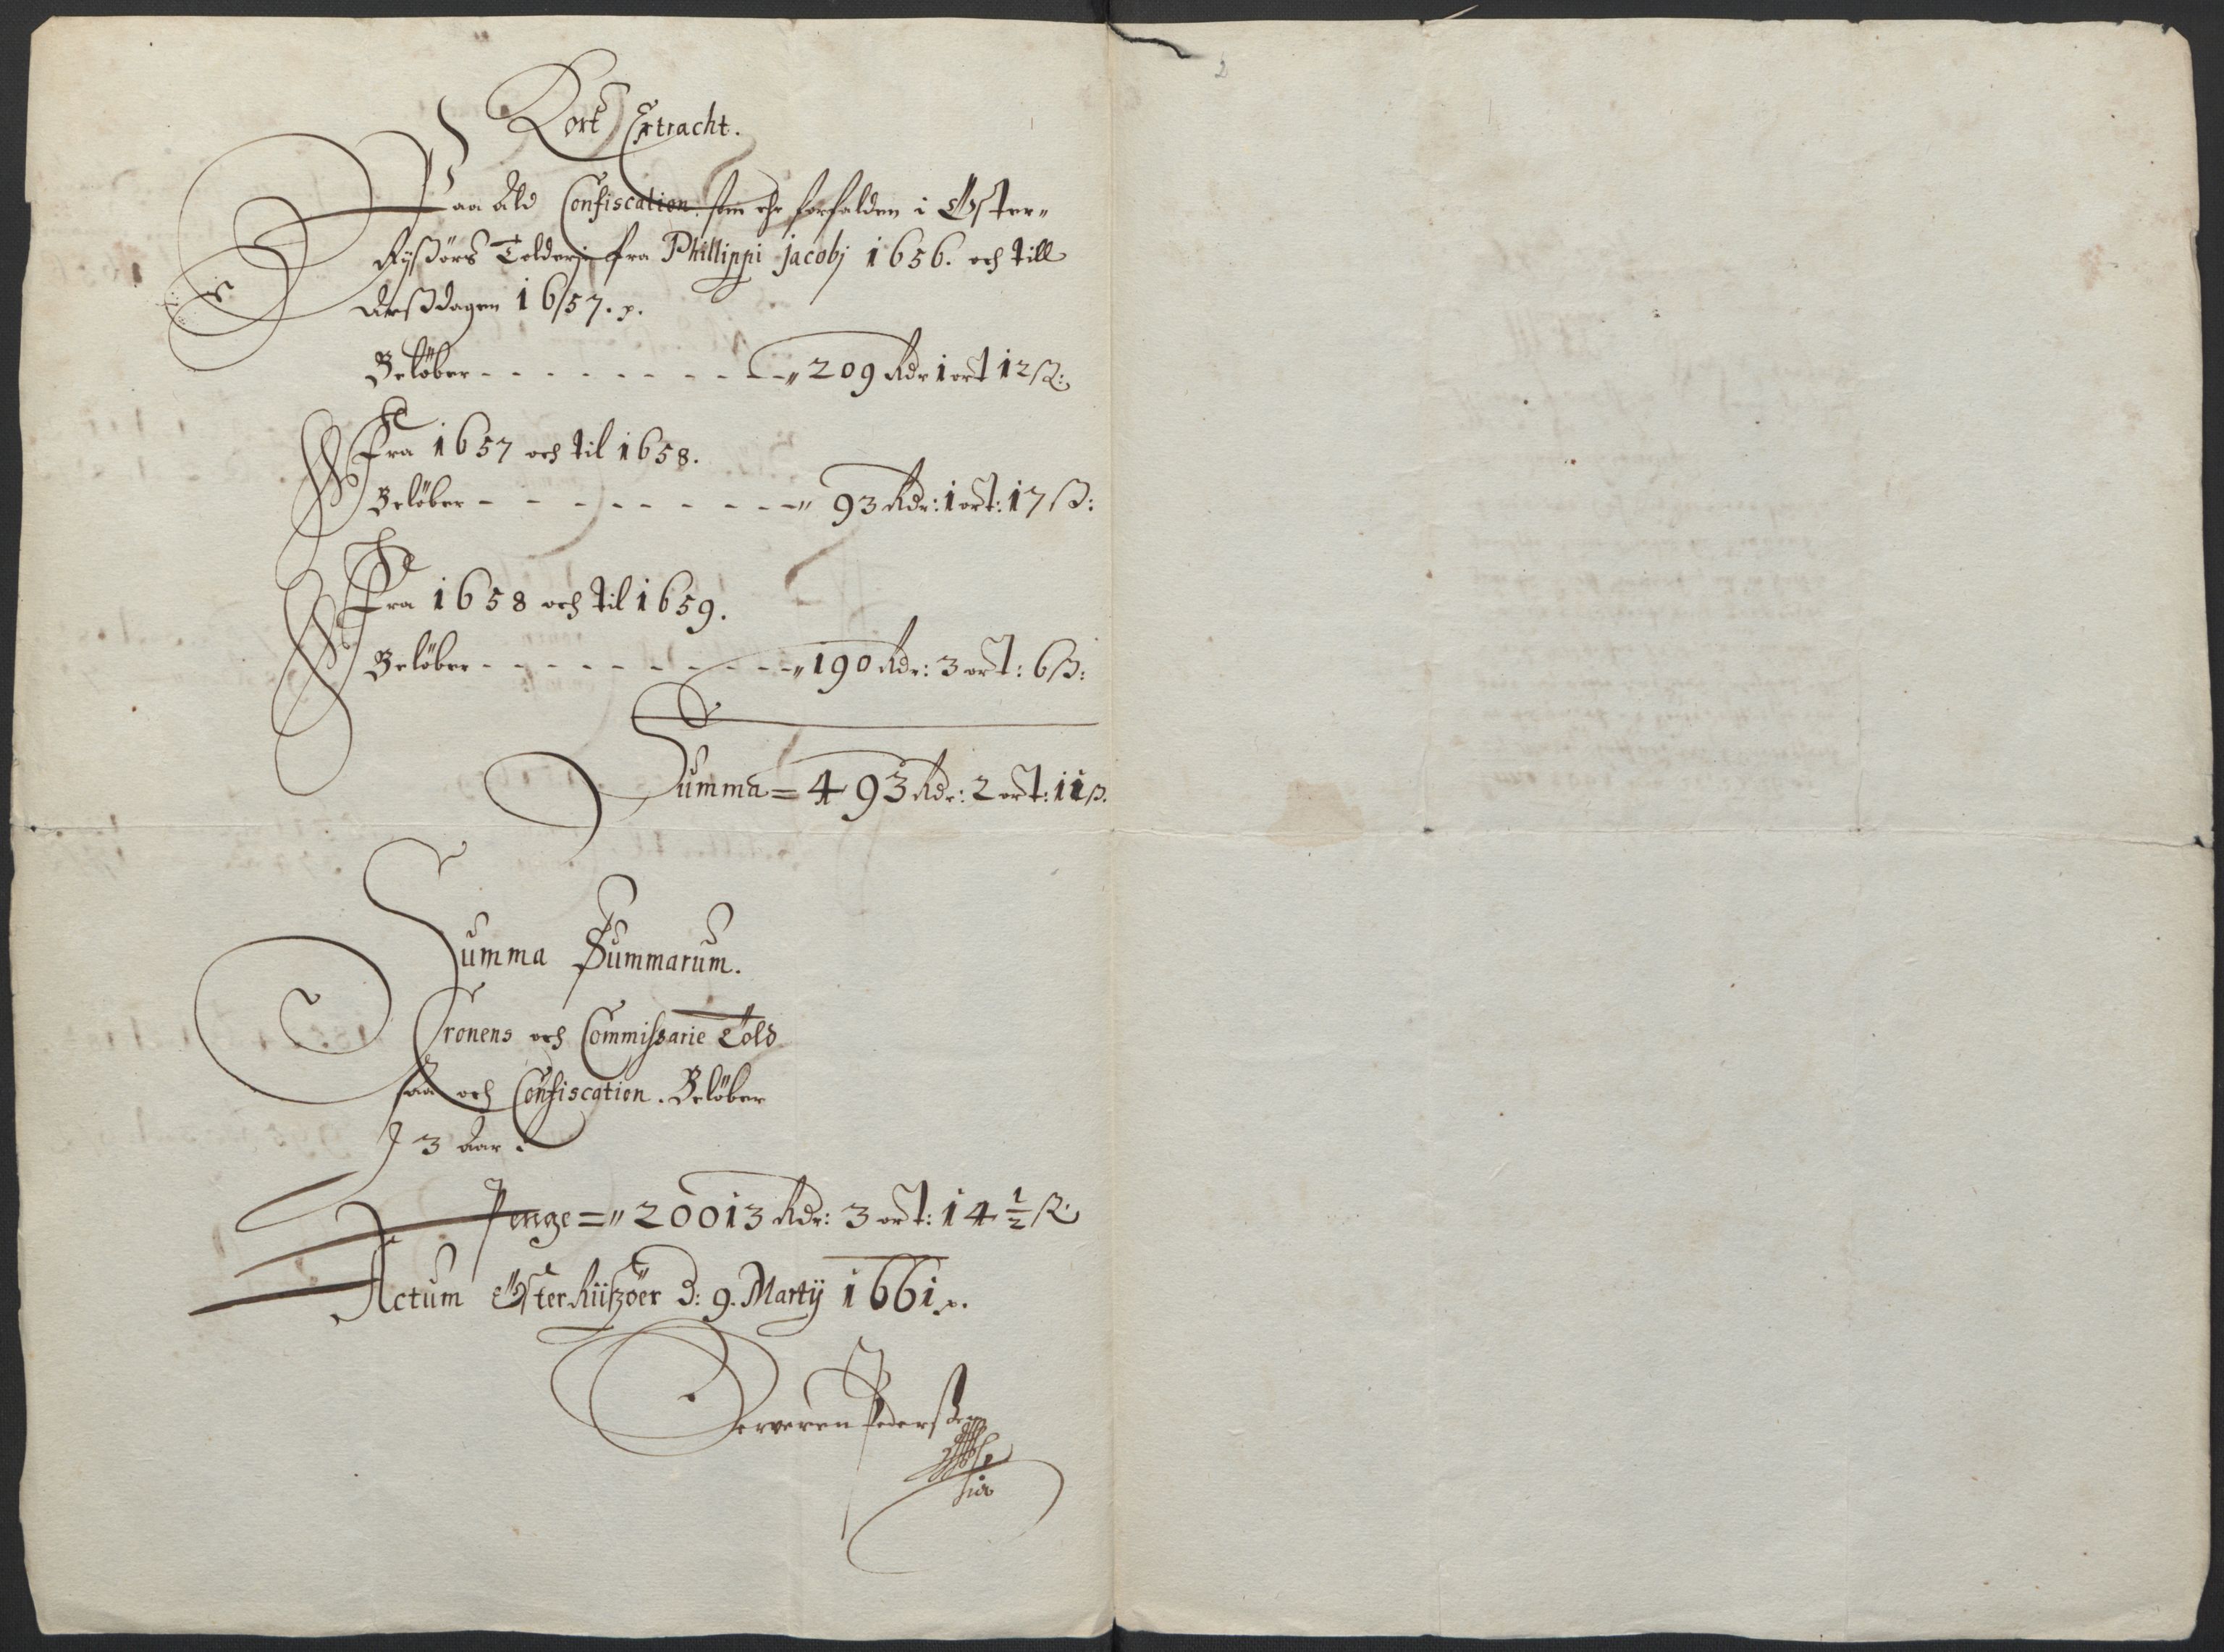 2
Kort Extracht.
Paa Ald Confiscation som ehr forfalden i Öster-
Rysörs Tolderj fra Phillippi Jacobj 1656. och till
Aarsdagen 1657.
Beløber - - - - - - - - - 209 Rdr 1 ort 12 ß:
Fra 1657 och til 1658.
Beløber - - - - - - - - - 93 Rdr: 1 ort: 17 ß:
Fra 1658 och til 1659.
Beløber - - - - - - - - - 190 Rdr: 3 ort: 6 ß:
Summa = 493 Rdr: 2 ort: 11 ß.
Summa Summarum.
Cronens och Commissarie Told
saa och Confiscation. Beløber
J 3 Aar:
Penge = 20013 Rdr: 3 ort: 14 1/2 ß.
Actum Österriisöer d: 9. Martij 1661.
Pederßen